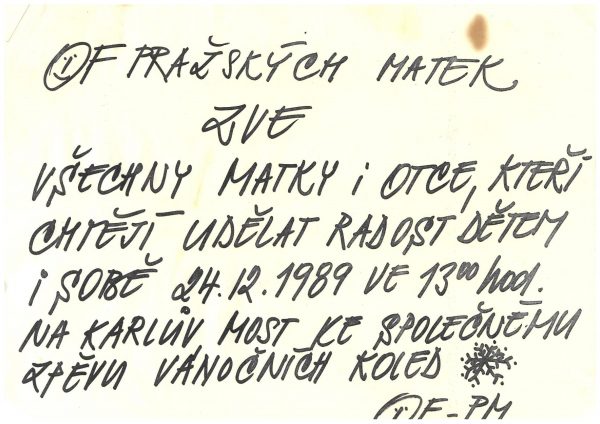 OF PRAŽSKÝCH MATEK
ZVE
VŠECHNY MATKY i OTCE, KTEŘÍ
CHTĚJÍ UDĚLAT RADOST DĚTEM
i SOBĚ 24.12.1989 VE 13⁰⁰ hod.
NA KARLŮV MOST KE SPOLEČNÉMU
ZPĚVU VÁNOČNÍCH KOLED
OF-PM